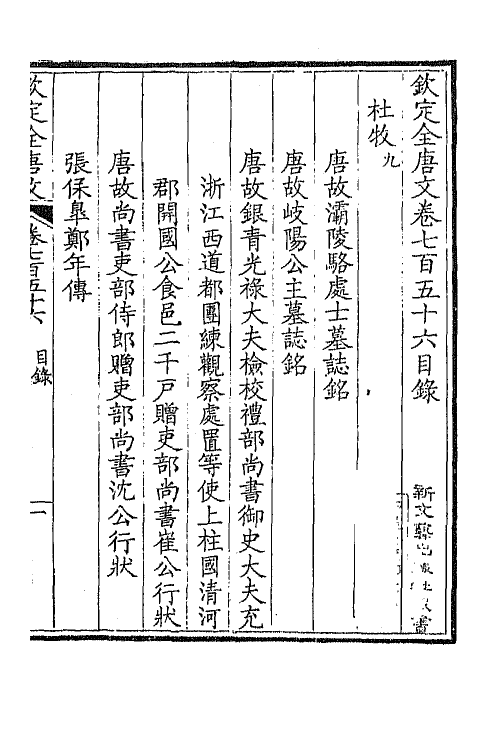 欽定全唐文卷七百五十六目錄
杜牧九
唐故灞陵駱處士墓誌銘
唐故岐陽公主墓誌銘
唐故銀青光祿大夫檢校禮部尚書御史大夫充
浙江西道都團練觀察處置等使上柱國清河
郡開國公食邑二千戸贈吏部尚書崔公行狀
唐故尚書吏部侍郎贈吏部尚書沈公行狀
張保臯鄭年傳
欽定全唐文
卷七百五十六
目錄
一